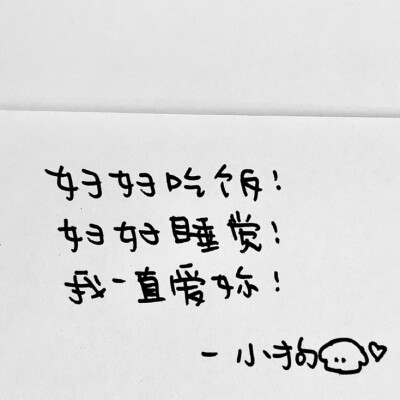 好好吃饭!
好好睡觉!
我一直爱妳!
一小狗